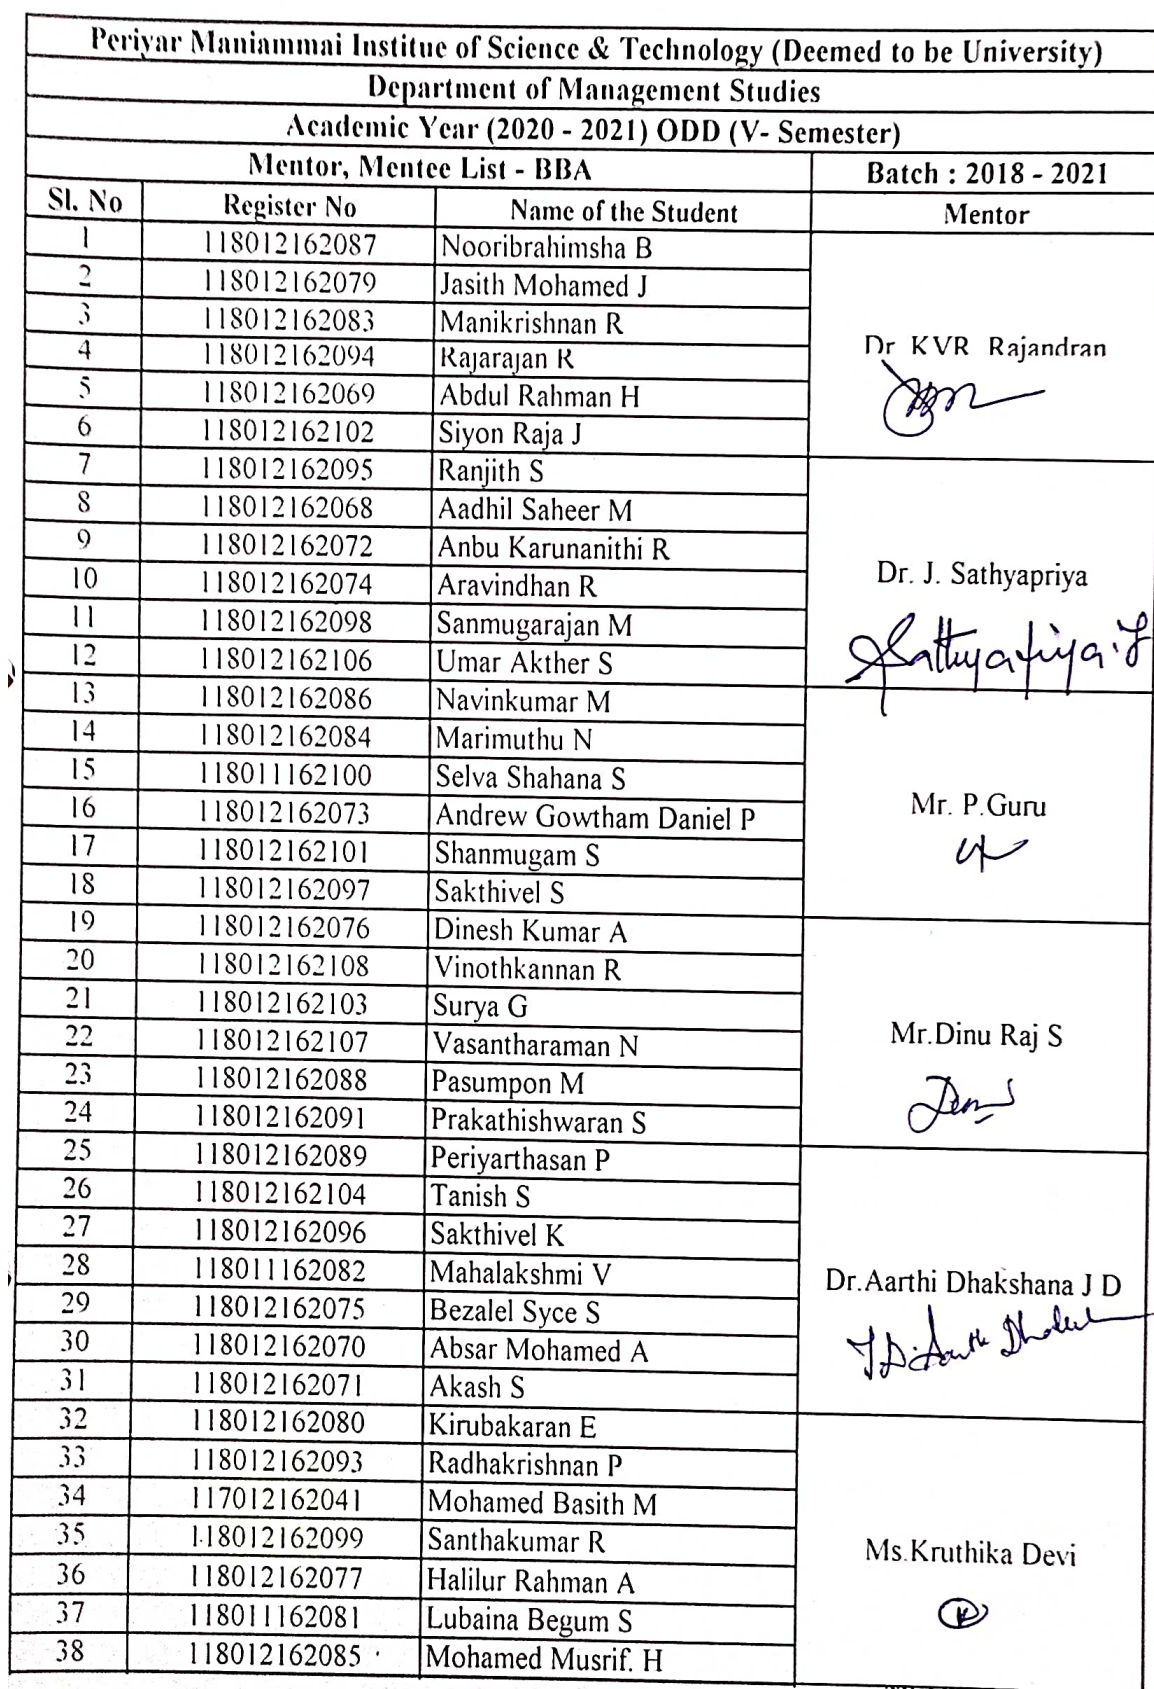 Periyar Maniammai Institue of Science & Technology (Deemed to be University)
Department of Management Studies
Academic Year (2020 - 2021) ODD (V- Semester)
Mentor, Mentee List - BBA Batch : 2018 - 2021
Sl. No Register No Name of the Student Mentor
1 118012162087 Nooribrahimsha B
2 118012162079 Jasith Mohamed J
3 118012162083 Manikrishnan R
4 118012162094 Rajarajan R Dr KVR Rajandran
5 118012162069 Abdul Rahman H
6 118012162102 Siyon Raja J
7 118012162095 Ranjith S
8 118012162068 Aadhil Saheer M
9 118012162072 Anbu Karunanithi R
10 118012162074 Aravindhan R Dr. J. Sathyapriya
11 118012162098 Sanmugarajan M
12 118012162106 Umar Akther S Sathyapriya.J
13 118012162086 Navinkumar M
14 118012162084 Marimuthu N
15 118011162100 Selva Shahana S
16 118012162073 Andrew Gowtham Daniel P Mr. P.Guru
17 118012162101 Shanmugam S
18 118012162097 Sakthivel S
19 118012162076 Dinesh Kumar A
20 118012162108 Vinothkannan R
21 118012162103 Surya G
22 118012162107 Vasantharaman N Mr.Dinu Raj S
23 118012162088 Pasumpon M
24 118012162091 Prakathishwaran S
25 118012162089 Periyarthasan P
26 118012162104 Tanish S
27 118012162096 Sakthivel K
28 118011162082 Mahalakshmi V Dr.Aarthi Dhakshana J D
29 118012162075 Bezalel Syce S
30 118012162070 Absar Mohamed A
31 118012162071 Akash S
32 118012162080 Kirubakaran E
33 118012162093 Radhakrishnan P
34 117012162041 Mohamed Basith M
35 118012162099 Santhakumar R Ms.Kruthika Devi
36 118012162077 Halilur Rahman A
37 118011162081 Lubaina Begum S
38 118012162085 Mohamed Musrif. H